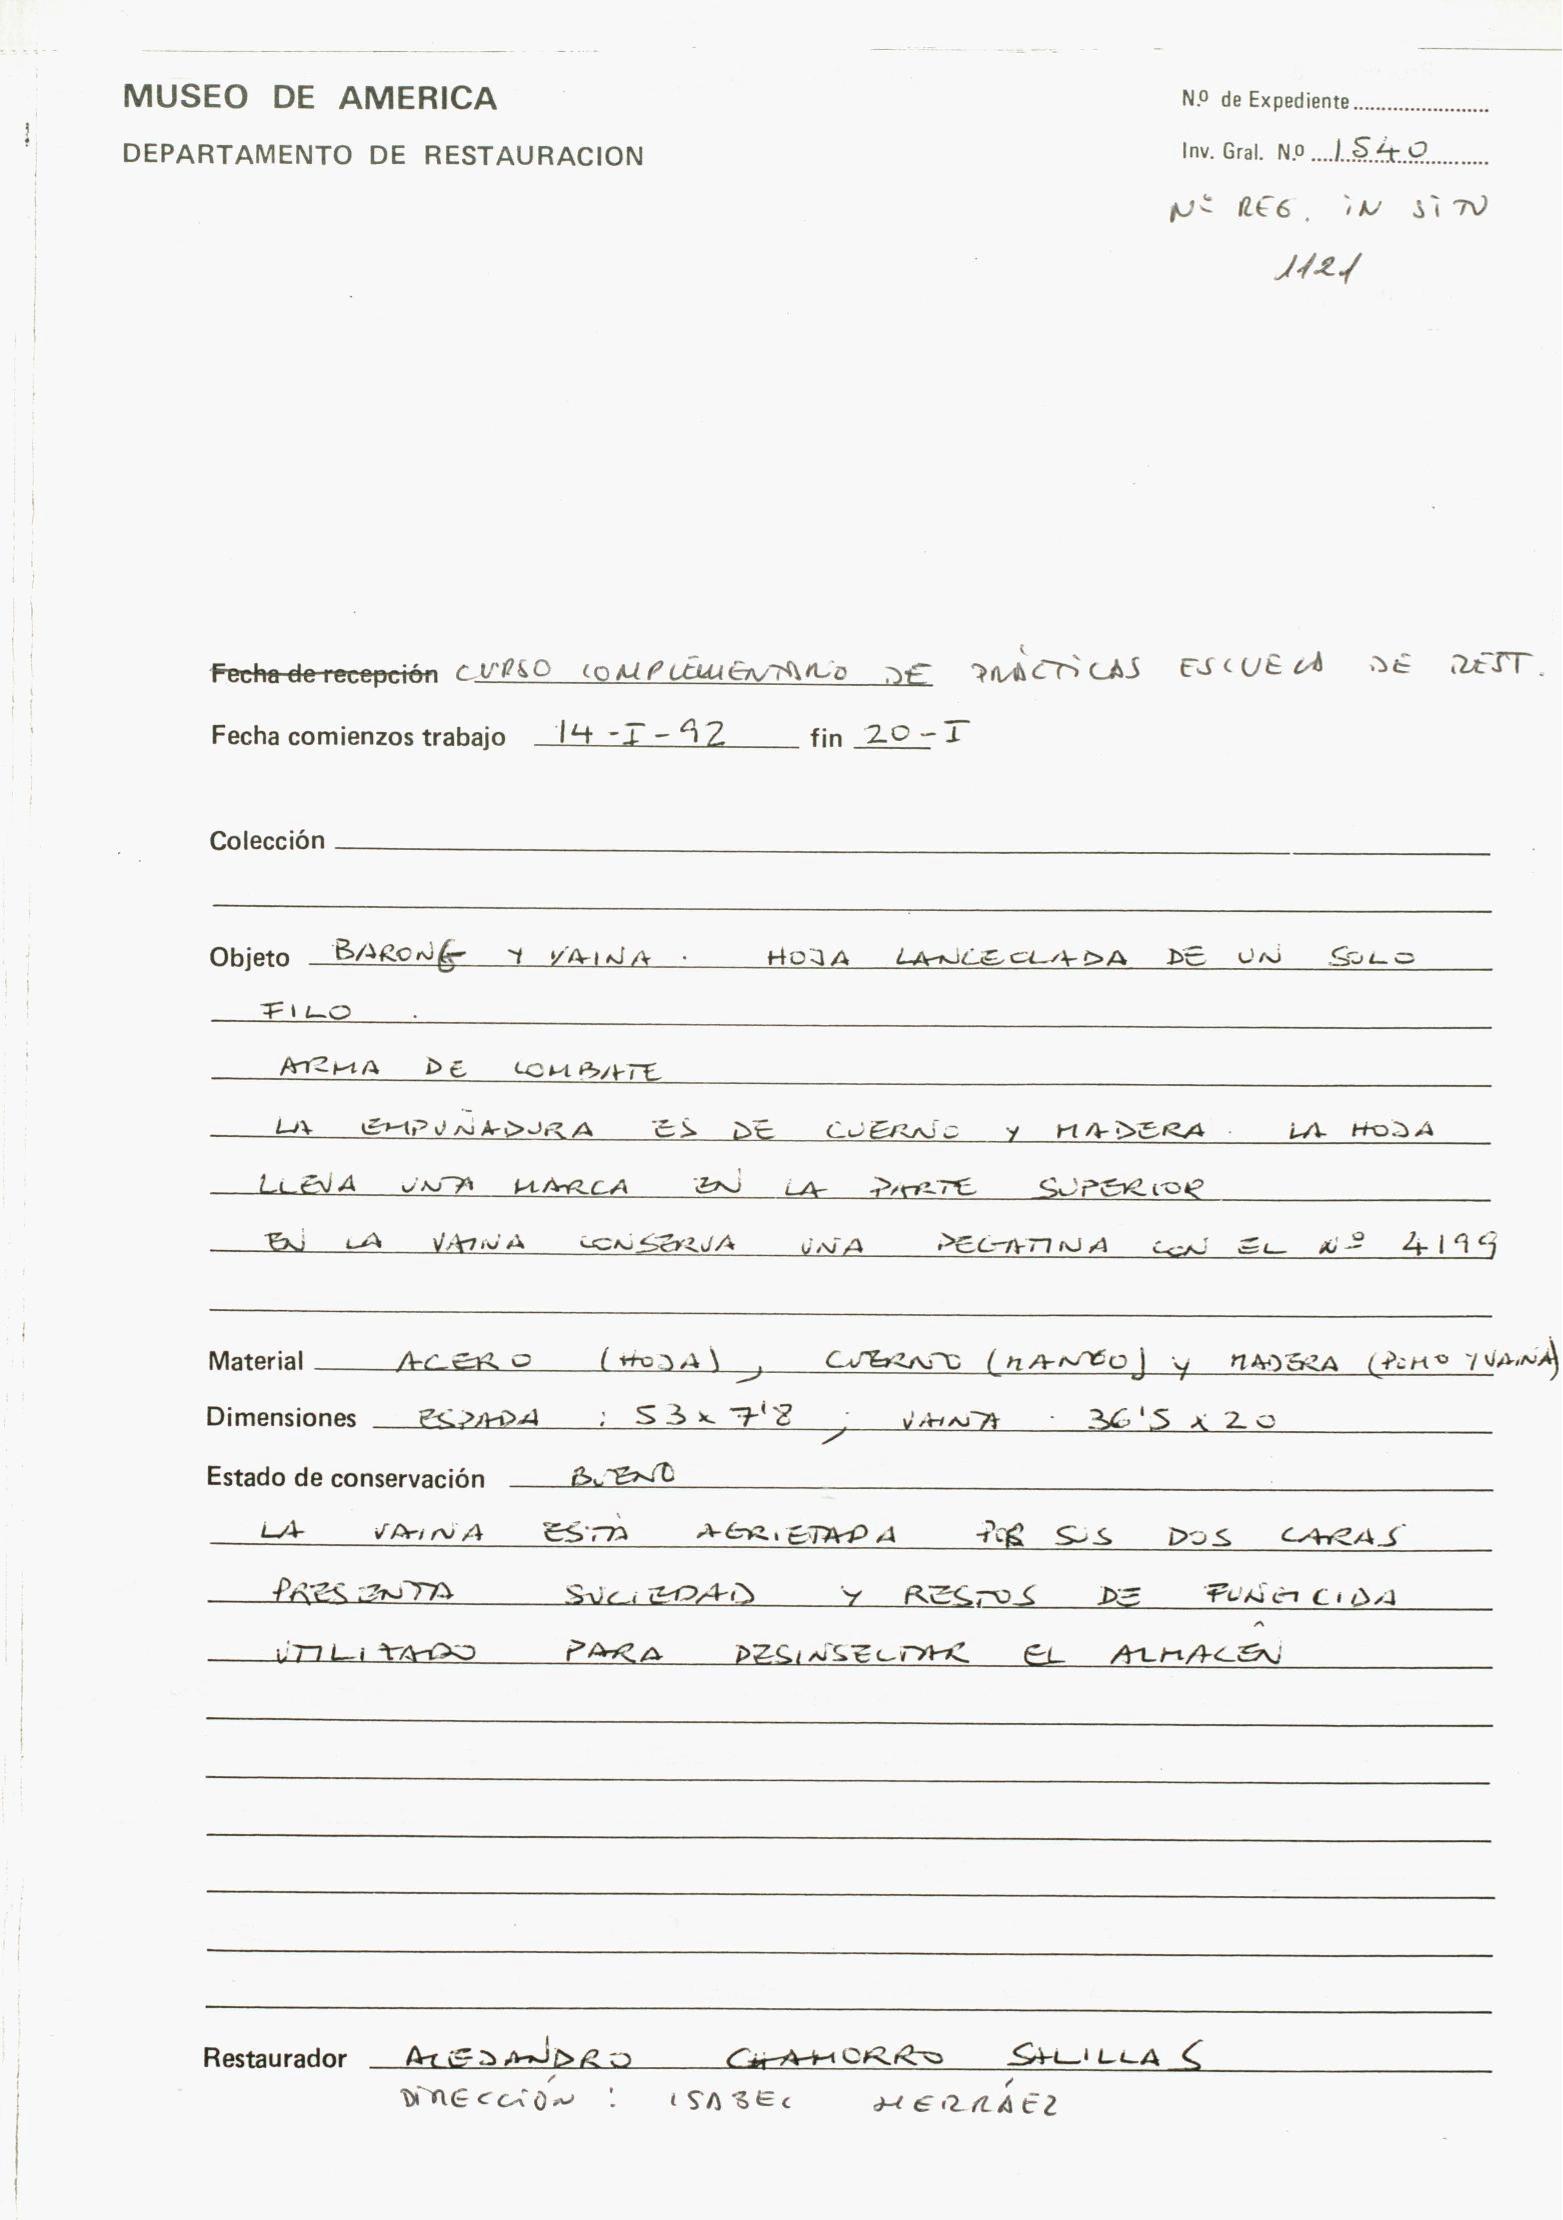 MUSEO DE AMERICA
DEPARTAMENTO DE RESTAURACION
N.º de Expediente
Inv. Gral. N.º 1540
Nº REG. IN SITU
1121
Fecha de recepción CURSO COMPLEMENTARIO DE PRÁCTICAS ESCUELA DE REST.
Fecha comienzos trabajo 14-I-92 fin 20-I
Colección
Objeto BARONG Y VAINA. HOJA LANCECLADA DE UN SOLO
FILO.
ARMA DE COMBATE
LA EMPUÑADURA ES DE CUERNO Y MADERA. LA HOJA
LLEVA UNA MARCA EN LA PARTE SUPERIOR
EN LA VAINA CONSERVA UNA PEGATINA CON EL Nº 4199
Material ACERO (HOJA), CUERNO (MANGO) y MADERA (POMO Y VAINA)
Dimensiones ESPADA : 53 x 7'8 ; VAINA . 36'5 x 20
Estado de conservación BUENO
LA VAINA ESTÁ AGRIETADA POR SUS DOS CARAS
PRESENTA SUCIEDAD Y RESTOS DE FUNGICIDA
UTILIZADO PARA DESINSECTAR EL ALMACÉN
Restaurador ALEJANDRO CHAMORRO SALILLAS
DIRECCIÓN : ISABEL HERRÁEZ